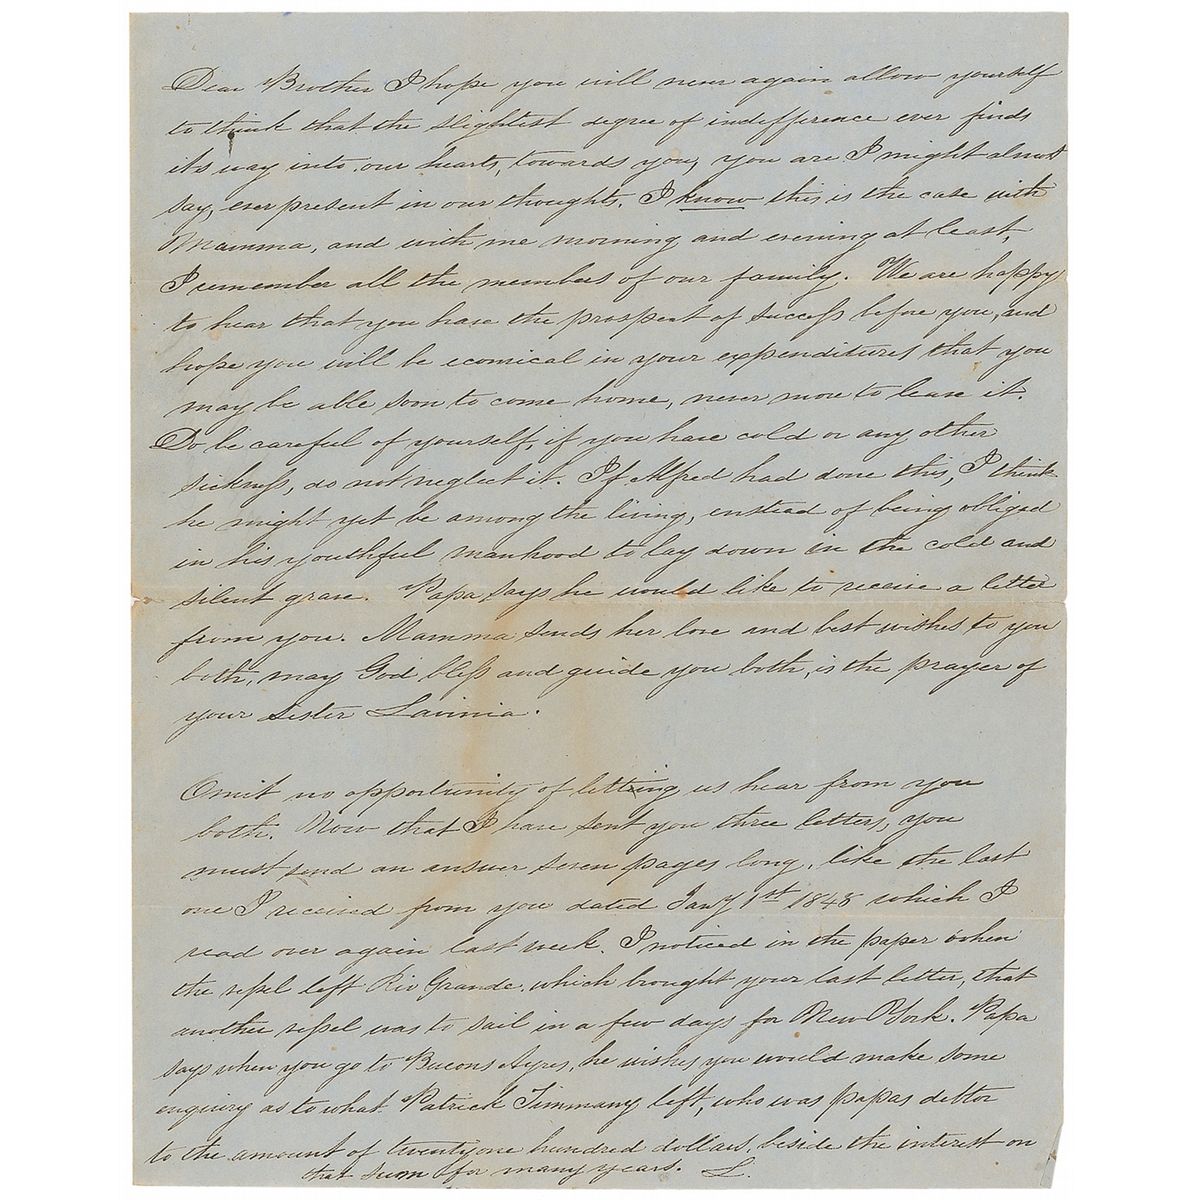 Dear Brother I hope you will never again allow yourself
to think that the slightest degree of indifference ever finds
its way into our hearts, towards you, you are I might almost
say, ever present in our thoughts. I know this is the case with
Mamma, and with me morning and evening at least,
I remember all the members of our family. We are happy
to hear that you have the prospect of success before you, and
hope you will be ecomical in your expenditures that you
may be able soon to come home, never more to leave it.
Do be careful of yourself, if you have cold or any other
sickness, do not neglect it. If Alfred had done this, I think
he might yet be among the living, enstead of being obliged
in his youthful manhood to lay down in the cold and
silent grave. Papa says he would like to receive a letter
from you. Mamma sends her love and best wishes to you
both, may God bless and guide you both, is the prayer of
your Sister Lavinia.
Omit no opportunity of letting us hear from you
both. Now that I have sent you three letters, you
must send an answer seven pages long, like the last
one I received from you dated Jany 1st 1848 which I
read over again last week. I noticed in the paper when
the vessel left Rio Grande which brought your last letter, that
another vessel was to sail in a few days for New York. Papa
says when you go to Buenos Ayres, he wishes you would make some
enquiry as to what Patrick Timmany left, who was papas debtor
to the amount of twentyone hundred dollars, beside the interest on
that sum for many years. L.